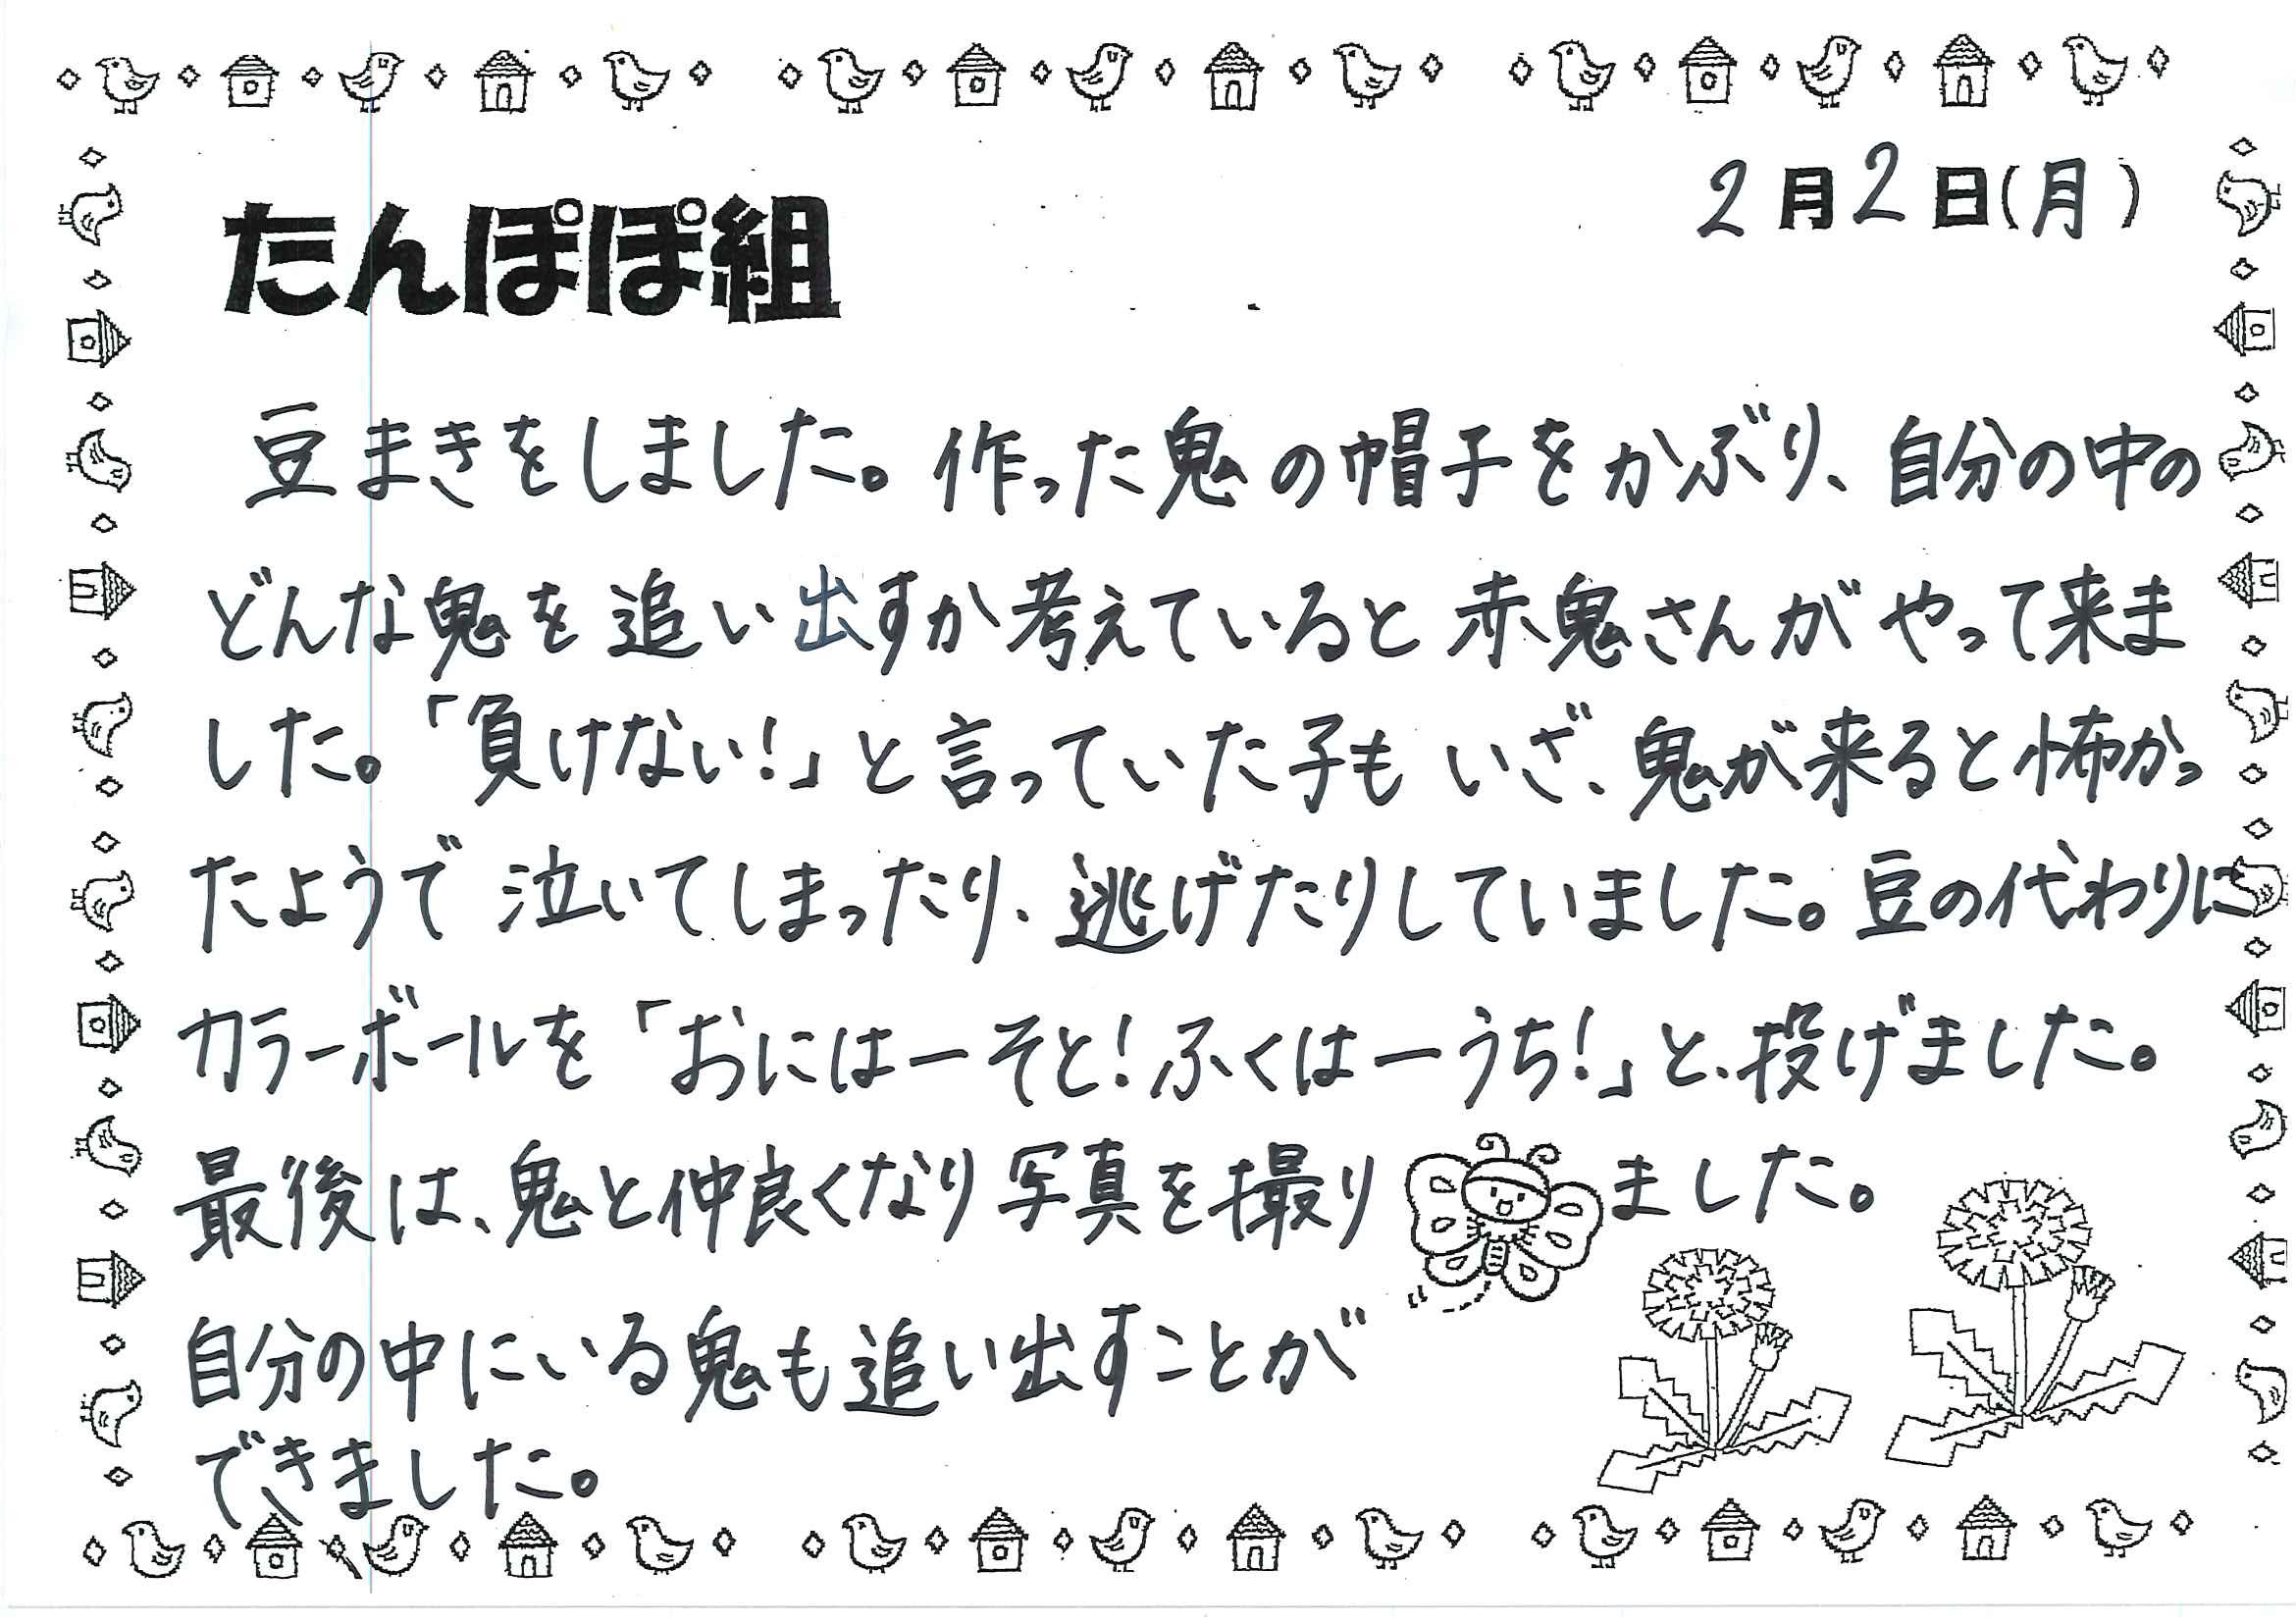 2月2日(月)
たんぽぽ組
豆まきをしました。作った鬼の帽子をかぶり、自分の中の
どんな鬼を追い出すか考えていると赤鬼さんがやって来ま
した。「負けない!」と言っていた子もいざ、鬼が来ると怖かっ
たようで泣いてしまったり、逃げたりしていました。豆の代わりに
カラーボールを「おにはーそと!ふくはーうち!」と、投げました。
最後は、鬼と仲良くなり写真を撮りました。
自分の中にいる鬼も追い出すことが
できました。